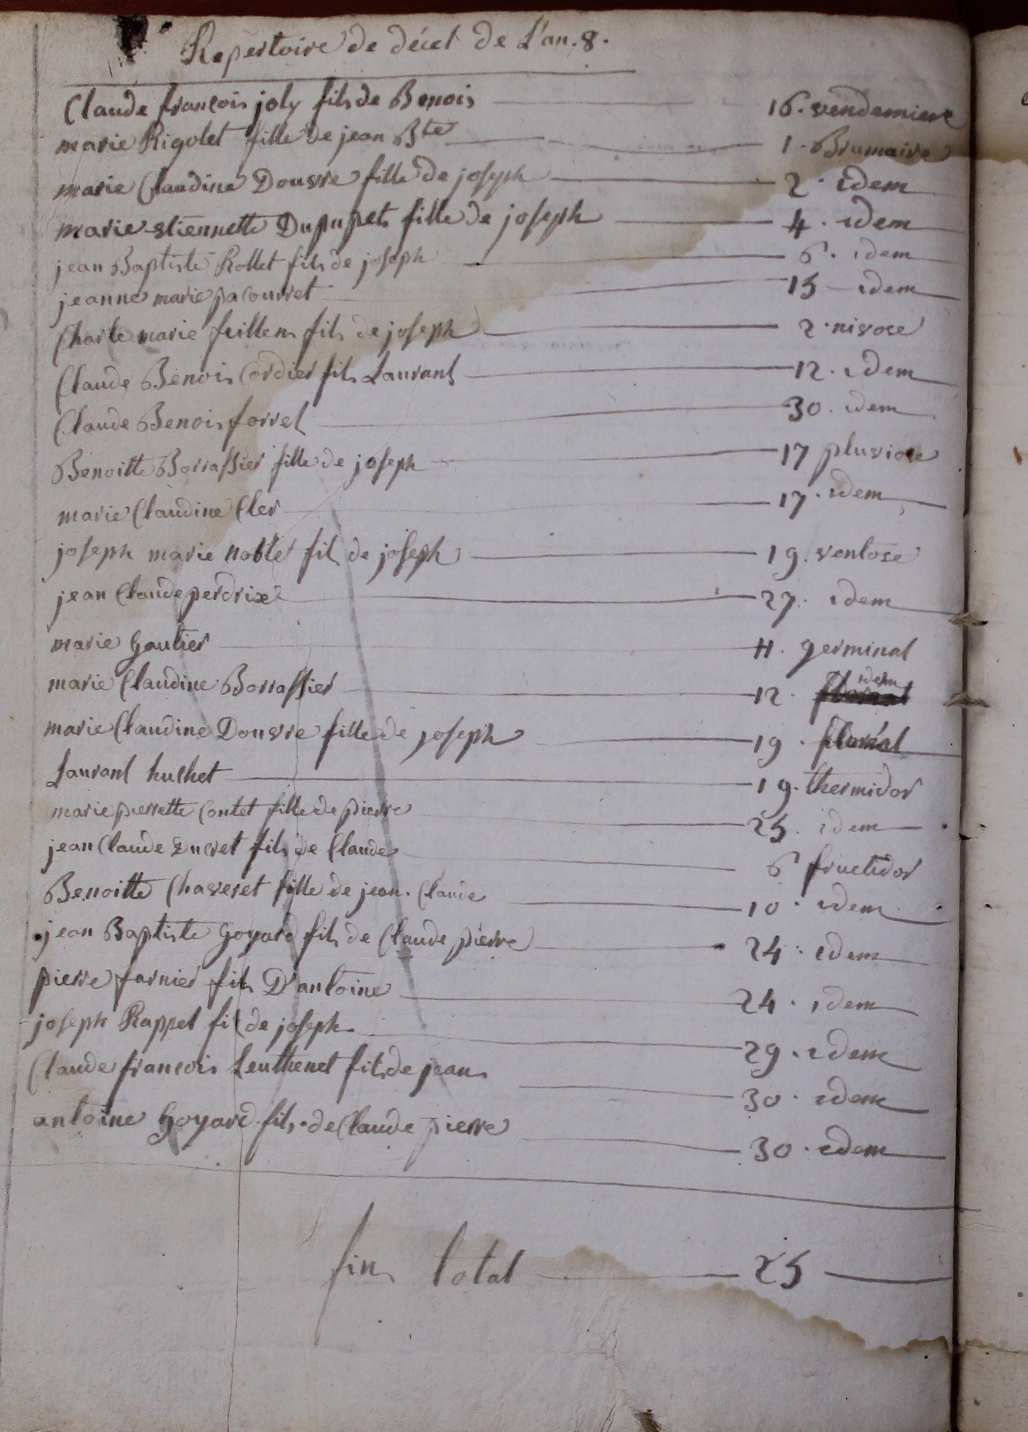 Repertoire de décet de L'an. 8.
Claude francois joly fils de Benois 16. vendemiere
marie Rigolet fille de jean Bte 1. Brumaire
marie Claudine Dousvre fille de joseph 2. idem
marie etiennette Dupupet fille de joseph 4. idem
jean Baptiste Rollet fils de joseph 6. idem
jeanne marie pacourret 15 idem
Charle marie feillens fils de joseph 2. nivose
Claude Benois Cordier fils Laurant 12. idem
Claude Benois forret 30. idem
Benoitte Borrassier fille de joseph 17 pluviose
marie Claudine Cler 17. idem
joseph marie noble fils de joseph 19. ventose
jean Claude perdrix 27. idem
marie Gautier 11. germinal
marie Claudine Borrassier 12. idem
marie Claudine Dousvre fille de joseph 19. floréal
Laurant huchet 19. thermidor
marie pierrette Contet fille de pierre 25. idem
jean Claude Ducret fils de Claude 6 fructidor
Benoitte Chaveret fille de jean. Claude 10. idem
jean Baptiste Goyard fils de Claude pierre 24. idem
pierre farnier fils D'antoine 24. idem
joseph Rappet fils de joseph 29. idem
Claude francois Leuthenet fils de jean 30. idem
antoine Goyard fils de Claude pierre 30. idem
fin total 25